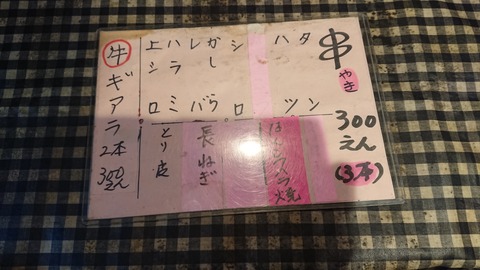 串やき 300えん(3本)
タン
ハツ
シロ
かしら
レバ
ハラミ
上シロ
長ねぎ
とり皮
牛ギアラ2本300えん